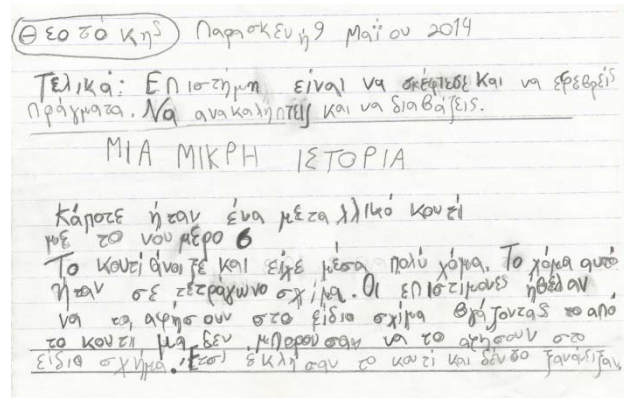 Θεοτόκης Παρασκευή 9 Μαΐου 2014
Τελικά: Επιστήμη είναι να σκέφτεσε και να εφεβρείς
πράγματα. Να ανακαλήπτεις και να διαβάζεις.
ΜΙΑ ΜΙΚΡΗ ΙΣΤΟΡΙΑ
Κάποτε ήταν ένα μεταλλικό κουτί
με το νουμερο 6
Το κουτί άνοιξε και είχε μέσα πολύ χόμα. Το χόμα αυτό
ήταν σε τετράγωνο σχίμα. Οι επιστιμονες ήθελαν
να το αφήσουν στο είδιο σχίμα βγάζοντας το από
το κουτι, μα δεν μπορούσαν να το αφησουν στο
είδιο σχήμα. Ετσι έκλησαν το κουτί και δεν το ξανάνιξαν.